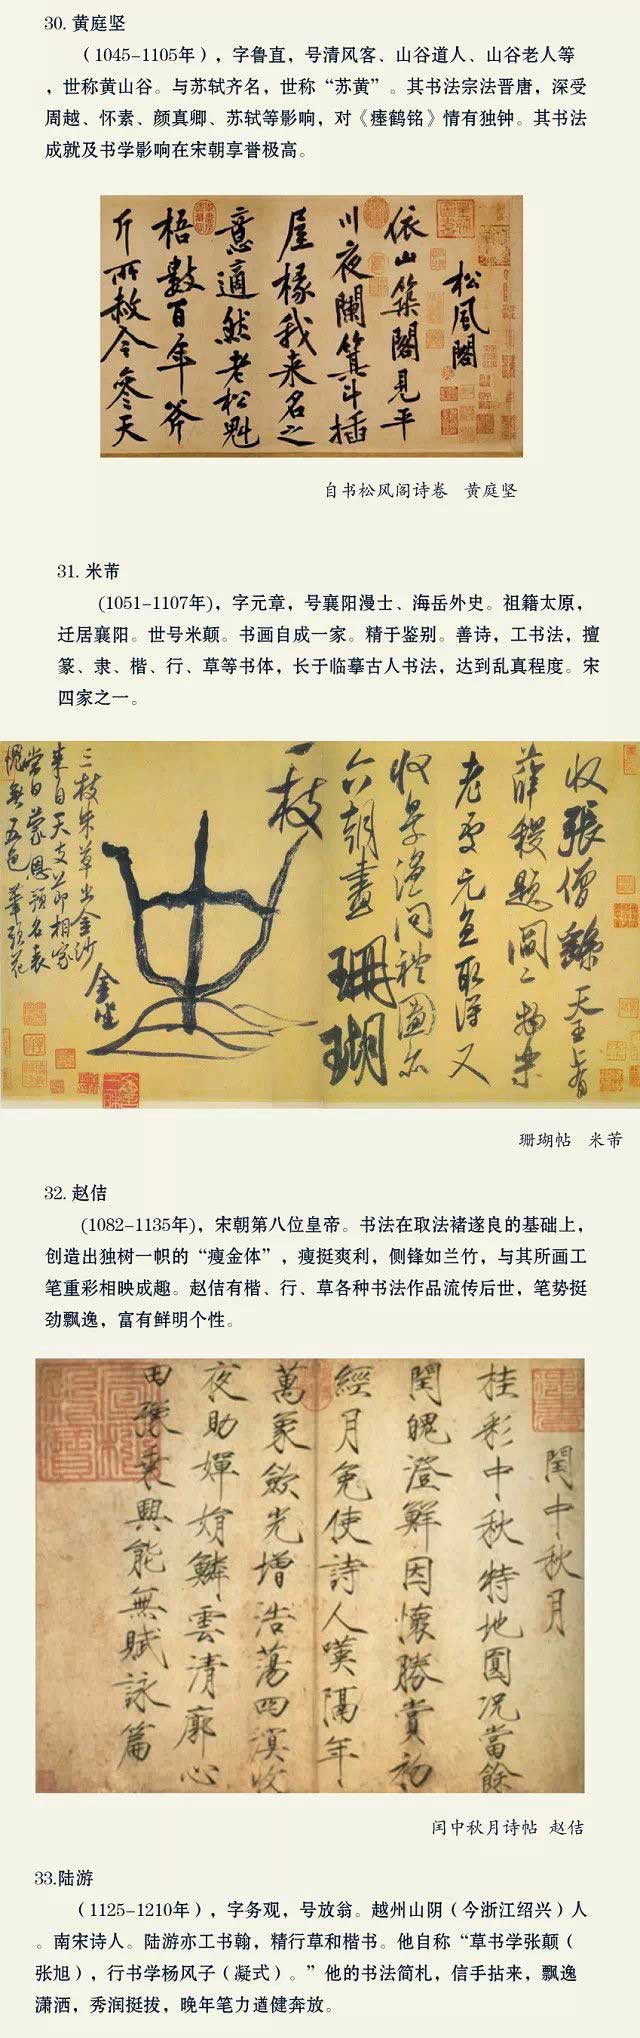 30. 黄庭坚
（1045-1105年），字鲁直，号清风客、山谷道人、山谷老人等
，世称黄山谷。与苏轼齐名，世称“苏黄”。其书法宗法晋唐，深受
周越、怀素、颜真卿、苏轼等影响，对《瘗鹤铭》情有独钟。其书法
成就及书学影响在宋朝享誉极高。
松風閣
依山築閣見平
川夜闌箕斗插
屋椽我来名之
意適然老松魁
梧數百年斧
斤所赦今參天
自书松风阁诗卷 黄庭坚
31. 米芾
(1051-1107年)，字元章，号襄阳漫士、海岳外史。祖籍太原，
迁居襄阳。世号米颠。书画自成一家。精于鉴别。善诗，工书法，擅
篆、隶、楷、行、草等书体，长于临摹古人书法，达到乱真程度。宋
四家之一。
收張僧繇天王上有
薛稷題閻二物樂
老處元直取得又
收景温問禮圖亦
六朝畫珊瑚
一枝
金坐
三枝朱草出金沙
来自天支節相家
當日蒙恩預名表
愧無五色筆頭花
珊瑚帖 米芾
32. 赵佶
(1082-1135年)，宋朝第八位皇帝。书法在取法褚遂良的基础上，
创造出独树一帜的“瘦金体”，瘦挺爽利，侧锋如兰竹，与其所画工
笔重彩相映成趣。赵佶有楷、行、草各种书法作品流传后世，笔势挺
劲飘逸，富有鲜明个性。
閏中秋月
桂彩中秋特地圓况當餘
閏魄澄鮮因懷勝賞初
經月免使詩人嘆隔年
萬象斂光增浩蕩四溟收
夜助嬋娟鱗雲清廓心
田豫乘興能無賦詠篇
闰中秋月诗帖 赵佶
33.陆游
（1125-1210年），字务观，号放翁。越州山阴（今浙江绍兴）人
。南宋诗人。陆游亦工书翰，精行草和楷书。他自称“草书学张颠（
张旭），行书学杨风子（凝式）。”他的书法简札，信手拈来，飘逸
潇洒，秀润挺拔，晚年笔力遒健奔放。